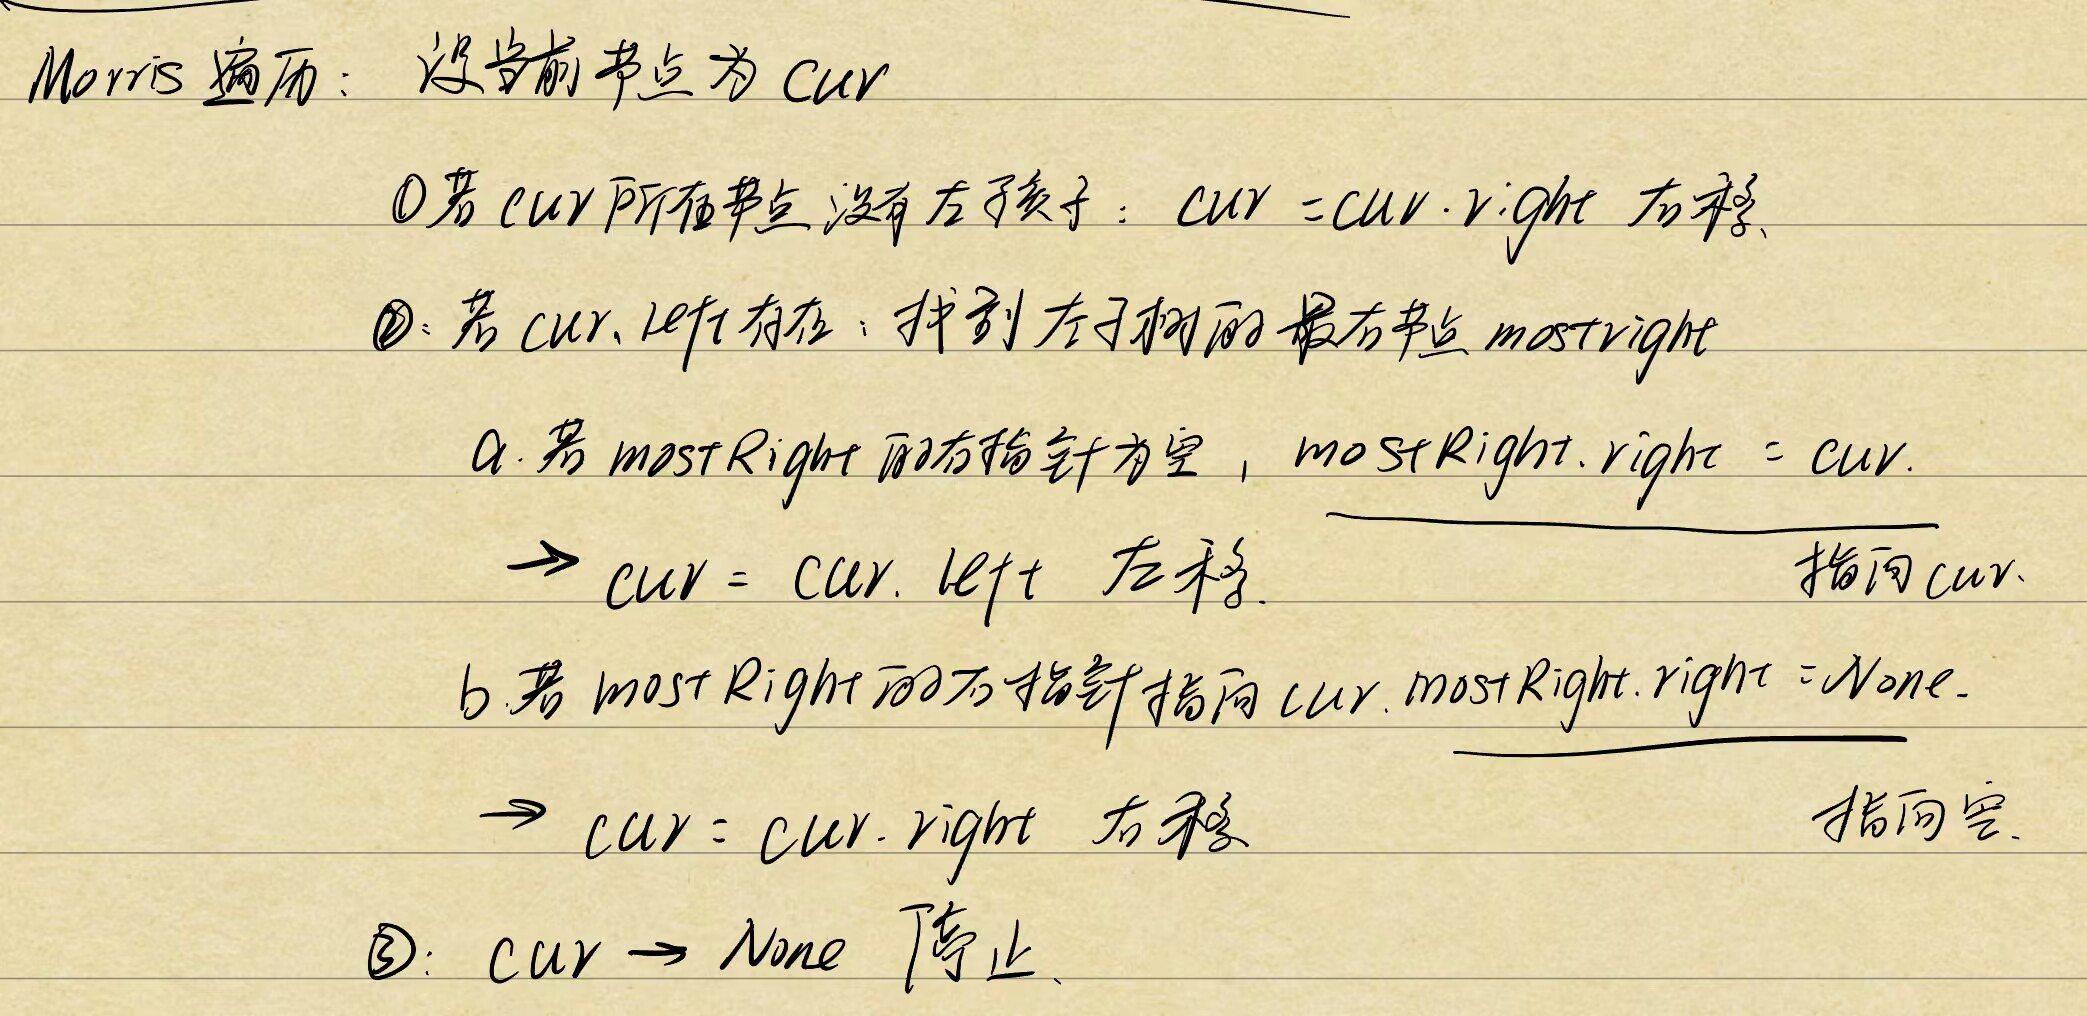 Morris 遍历: 设当前节点为 cur
①若 cur 所在节点没有左子孩子: cur = cur.right 右移、
②:若 cur.left 存在:找到左子树的最右节点 mostright
a.若 mostRight 的右指针为空, mostRight.right = cur.
→ cur = cur.left 左移. 指向 cur.
b.若 mostRight 的右指针指向 cur. mostRight.right = None.
→ cur = cur.right 右移 指向空.
③: cur → None 停止、